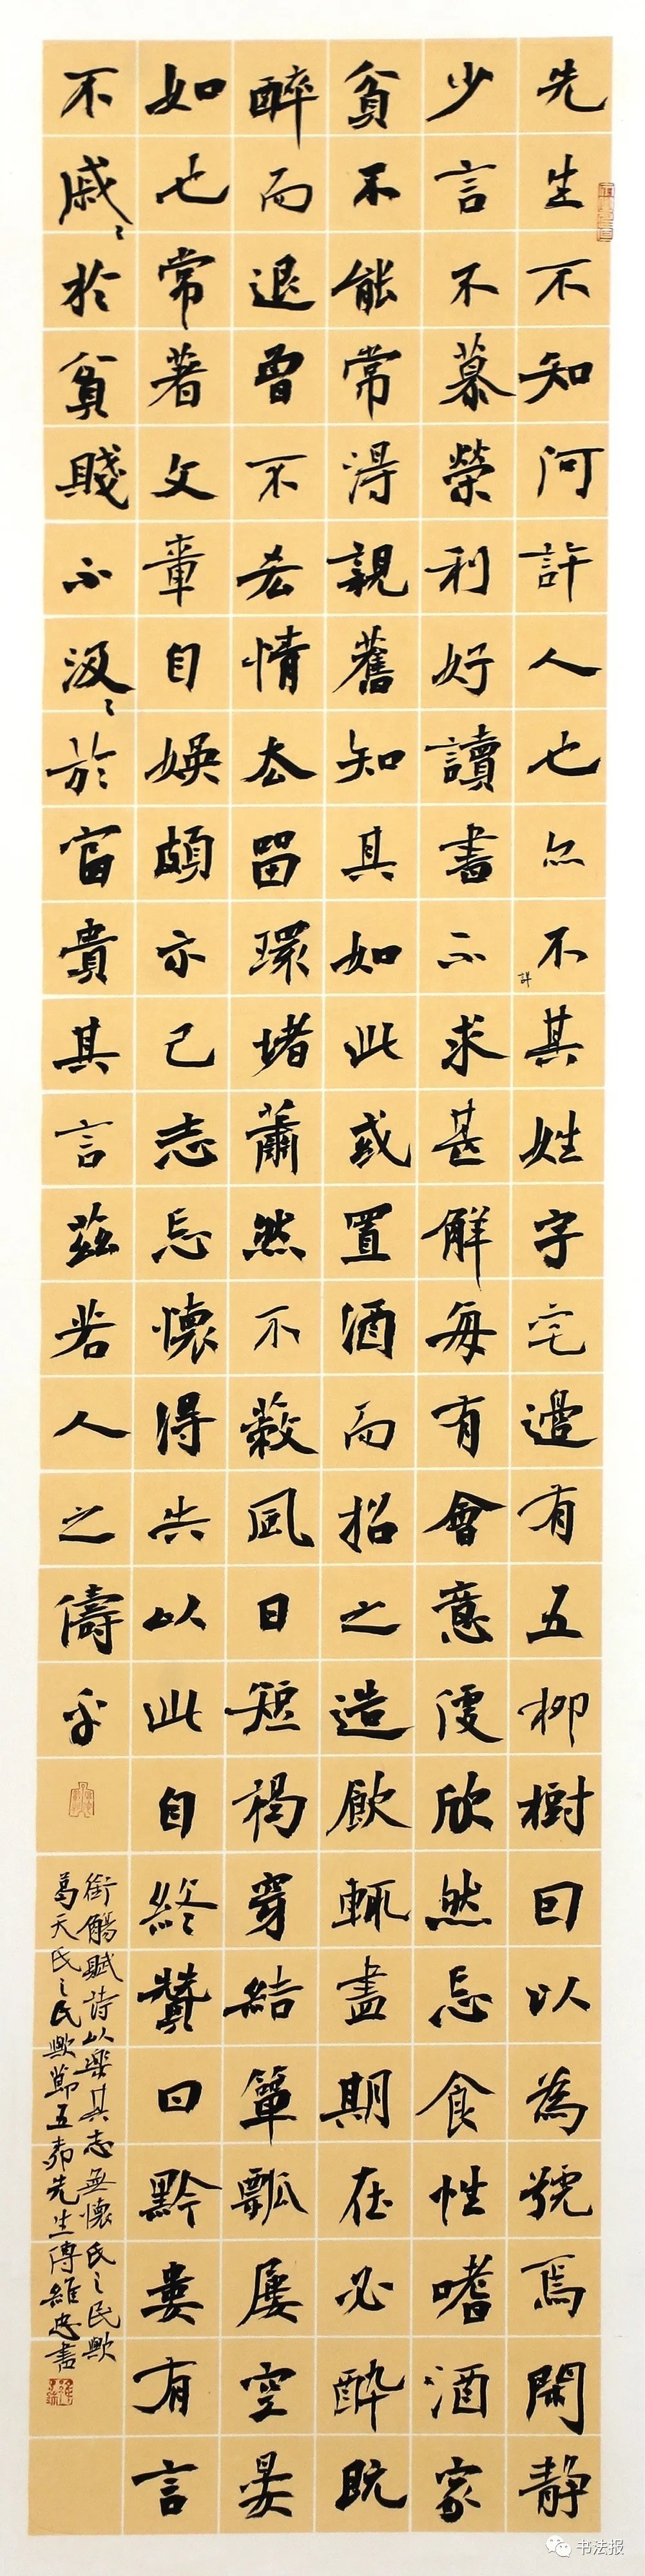 先生不知何許人也亦不詳其姓字宅邊有五柳樹因以為號焉閑静
少言不慕榮利好讀書不求甚解每有會意便欣然忘食性嗜酒家
貧不能常得親舊知其如此或置酒而招之造飲輒盡期在必醉既
醉而退曾不吝情去留環堵蕭然不蔽風日短褐穿結簞瓢屢空晏
如也常著文章自娛頗示己志忘懷得失以此自終贊曰黔婁有言
不戚〻於貧賤不汲〻於富貴其言茲若人之儔乎
銜觴賦詩以樂其志無懷氏之民歟
葛天氏之民歟節五柳先生傳維忠書
书法报